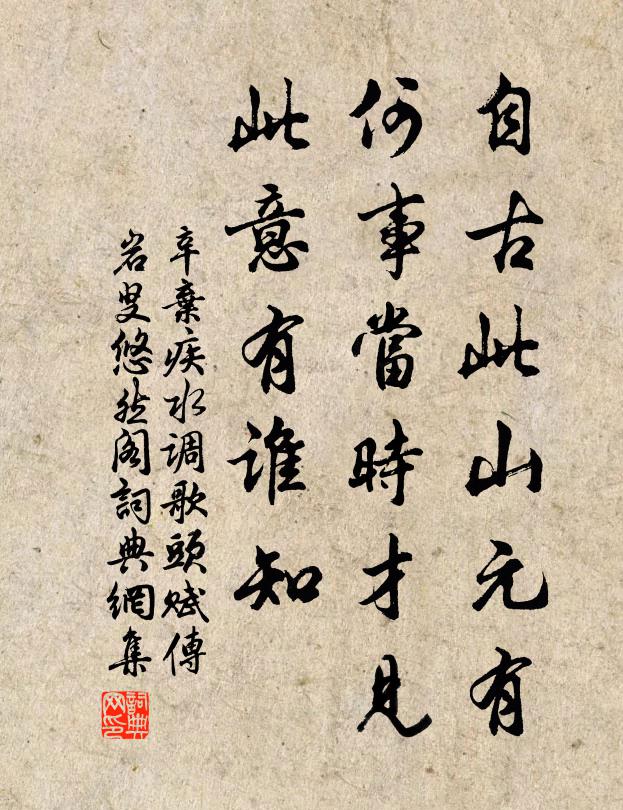 自古此山元有
何事當時才見
此意有誰知
辛棄疾水调歌頭賦傅
岩叟悠然阁詞典網集
詞典
网印